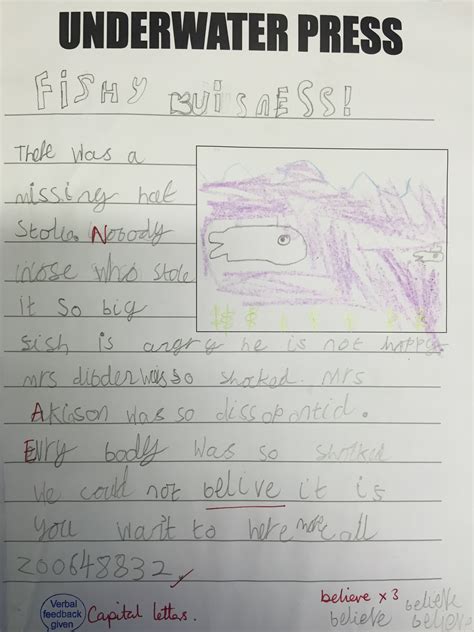 UNDERWATER PRESS
FiSHY BUiSNESS!
There was a
missing hat
Stolen Nobody
nose who stole
it so big
fish is angry he is not happy
mrs dibder was so shocked. Mrs
Akioson was so dissopontid.
Evry body was so shoked
we could not belive it is
you want to here more call
200648832
Verbal feedback given
Capital lettas.
believe x3
believe
believe
believe